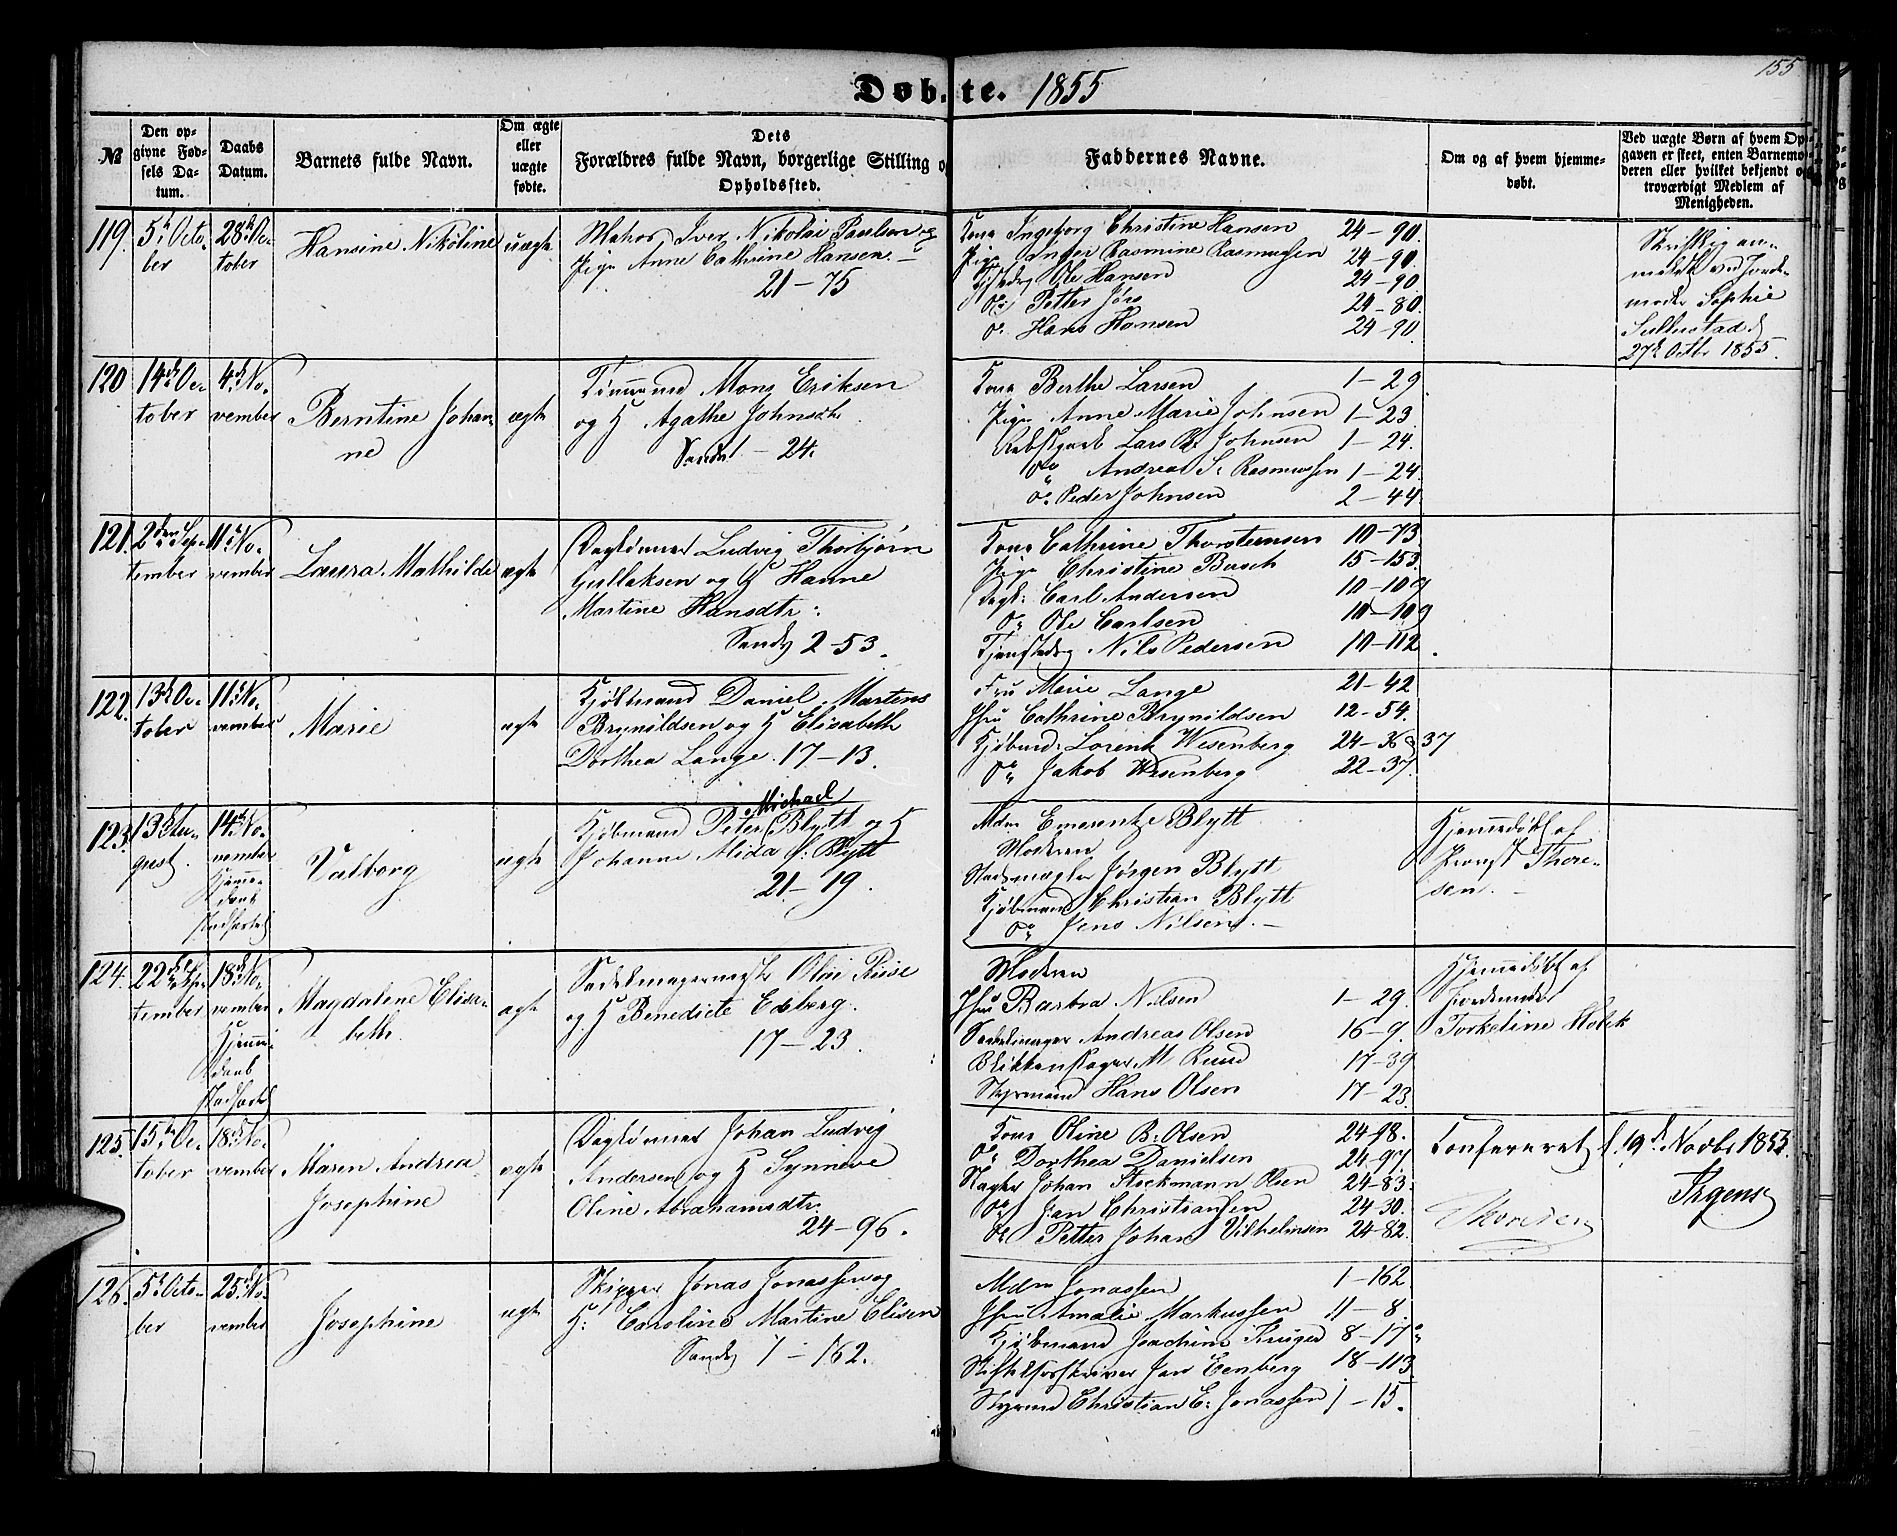 155
Døbte. 1855
№
Den opgivne Fødsels Datum.
Daabs Datum.
Barnets fulde Navn.
Om ægte eller uægte fødte.
Dets Forældres fulde Navn, borgerlige Stilling o Opholdssted.
Faddernes Navne.
Om og af hvem hjemmedøbt.
Ved uægte Børn af hvem Opgaven er skeet, enten Barnemoderen eller hvilket bekjendt o troværdigt Medlem af Menigheden.
119.
5t Octo-
ber
28de Oc-
tober
Hansine Nikoline
uægte
Matros Iver Nikolai Paulsen og
Pige Anne Cathrine Hansen. –
21–75
Kone Ingeborg Christine Hansen 24–90.
Pige Inger Rasmine Rasmussen 24–90.
Ole Hansen 24–90.
Do Petter Jørs 24–80.
Do Hans Hansen 24–90.
Skriftlig an-
meldt ved Jorde-
moder Sophie
27de Octbr 1855.
120
14de Oc-
tober
4de No-
vember
Berntine Johan-
ne
ægte
Tømmermd Mons Eriksen
og H Agathe Johnsdtr
Sandv 1–24.
Kone Berthe Larsen 1–29
Pige Anne Marie Johnsen 1–23.
Lars R. Johnsen 1–24.
Do Andreas S. Rasmussen 1–24.
Do Peder Johnsen 2–44
121.
2den Sep-
tember
11te No-
vember
Laura Mathilde
ægte
Daglønner Ludvig Thorbjørn
Gullaksen og H Hanne
Martine Hansdtr.
Sandv 2–53.
Kone Cathrine Thorstensen 10–73.
Pige Christine Busch 15–153.
Dagl: Carl Andersen 10–109
Do Ole Carlsen 10–109
Tjenestedrg Nils Pedersen 10–112.
122.
13de Oc-
tober
11te No-
vember
Marie
ægte
Kjøbmand Daniel Martens
Brynildsen og H Elisabeth
Dorthea Lange. 17–13.
Fru Marie Lange 21–42
Jfru Cathrine Brynildsen 12–54.
Kjøbmd. Lorentz Wesenberg 24–36 & 37
Do Jakob Wesenberg 22–37.
123.
13 Au-
gust.
14de No-
vember
Hjemme-
daab
stadfæstet
Valborg
ægte
Michael
Kjøbmand Peter Blytt og H
Johanne Alida f: Blytt
21–19.
Mdm Emerentze Blytt
Moderen
Stadsmægler Jørgen Blytt
Kjøbmand Christian Blytt
Do Jens Nilsen. –
Hjemmedøbt af
Provst Thore-
sen. –
124.
22de Sep-
tember
18de No-
vember
Hjemme-
daab
stadfæstet
Magdalene Elisa-
beth.
ægte
Sadelmagermester Olai Riise
og H Benedicte Exberg.
17–23.
Moderen
Jfru Barbra Nilsen 1–29.
Sadelmager Andreas Olsen 16–9.
Blikkenslager M. Ruud 17–39
Styrmand Hans Olsen 17–23.
Hjemmedøbt af
Jordemoder
Torkeline Holck
125.
15de Oc-
tober
18de No-
vember
Maren Andrea
Josephine
ægte
Daglønner Johan Ludvig
Andersen og H Synneve
Oline Abrahamsdtr.
24–96.
Kone Oline B. Olsen 24–98.
Do Dorthea Danielsen 24–97
Slagter Johan Stockmann Olsen 24–83.
Do Jan Christiansen 24–30.
Do Petter Johan Vilhelmsen 24–82.
Confereret d. 19de Novbr 1855.
Thoresen
Irgens
126.
5t Octo-
ber
25de No-
vember
Josephine
ægte
Skipper Jonas Jonassen og
H: Caroline Martine Elisen
Sandv 1–162.
Mdm Jonassen 1–162
Jfru Amalie Markussen 11–8.
Kjøbmand Joachim Krüger 8–17
Jan Eenberg 18–113
Styrmd Christian E. Jonassen 1–15.